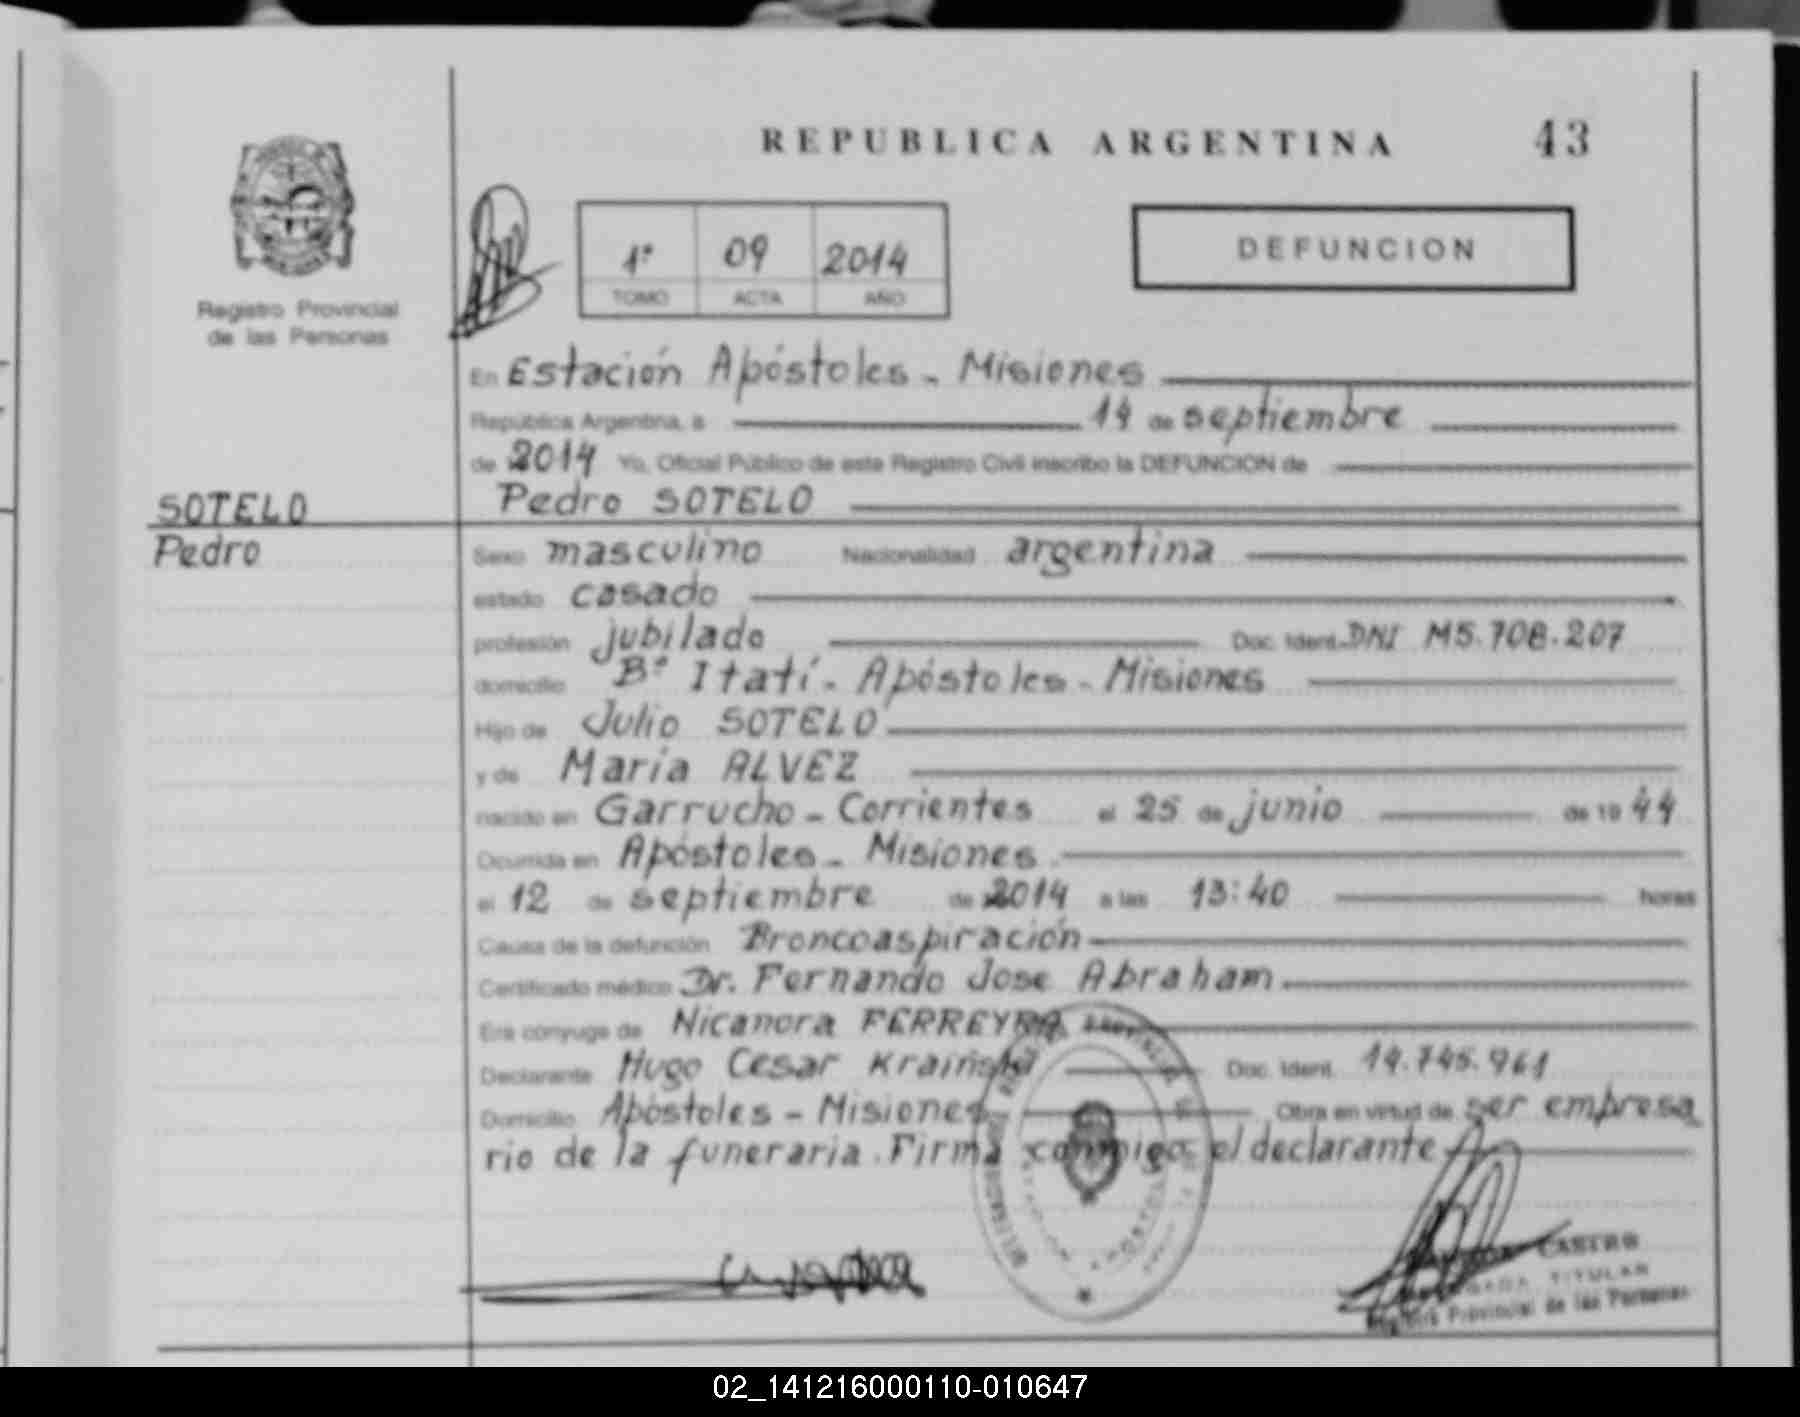 REPUBLICA ARGENTINA 43
1º 09 2014
TOMO ACTA AÑO
DEFUNCION
Registro Provincial
de las Personas
En Estación Apóstoles - Misiones
República Argentina, a 14 de septiembre
de 2014 Yo, Oficial Público de este Registro Civil inscribo la DEFUNCION de
SOTELO Pedro SOTELO
Pedro Sexo masculino Nacionalidad argentina
estado casado
profesión jubilado Doc. Ident. DNI M5.708.207
domicilio Bº Itatí - Apóstoles - Misiones
Hijo de Julio SOTELO
y de María ALVEZ
nacido en Garrucho - Corrientes el 25 de junio de 19 44
Ocurrida en Apóstoles - Misiones
el 12 de septiembre de 2014 a las 13:40 horas
Causa de la defunción Broncoaspiración
Certificado médico Dr. Fernando Jose Abraham
Era cónyuge de Nicanora FERREYRA
Declarante Hugo Cesar Kraiński Doc. Ident. 14.745.961
Domicilio Apóstoles - Misiones Obra en virtud de ser empresa
rio de la funeraria. Firma conmigo el declarante
CASTRO
TITULAR
Registro Provincial de las Personas
02_141216000110-010647